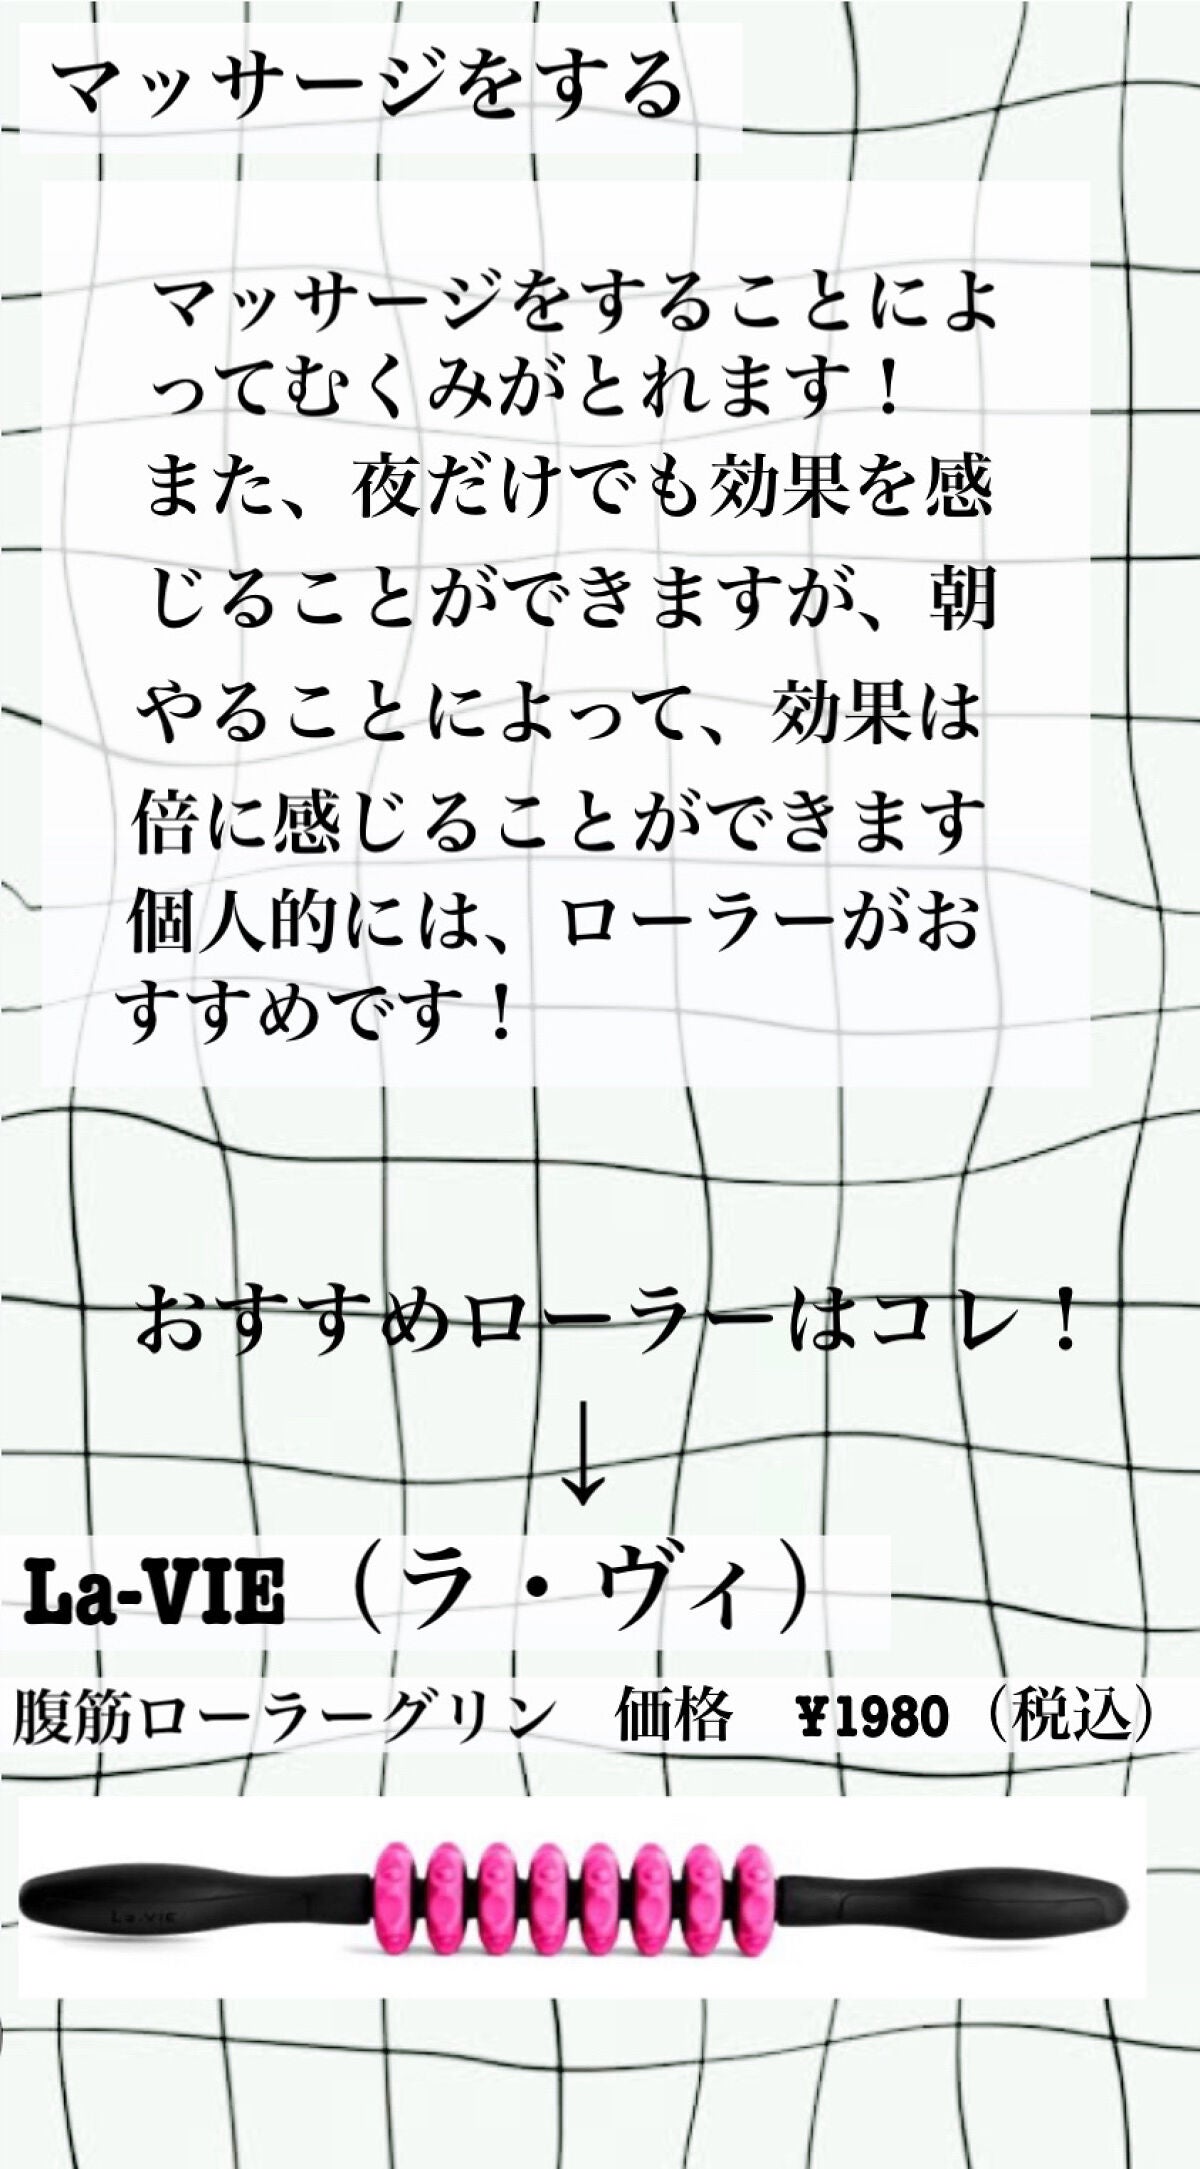 マッサージをする
マッサージをすることによ
ってむくみがとれます！
また、夜だけでも効果を感
じることができますが、朝
やることによって、効果は
倍に感じることができます
個人的には、ローラーがお
すすめです！
おすすめローラーはコレ！
↓
La-VIE（ラ・ヴィ）
腹筋ローラーグリン　価格　¥1980（税込）
La-VIE